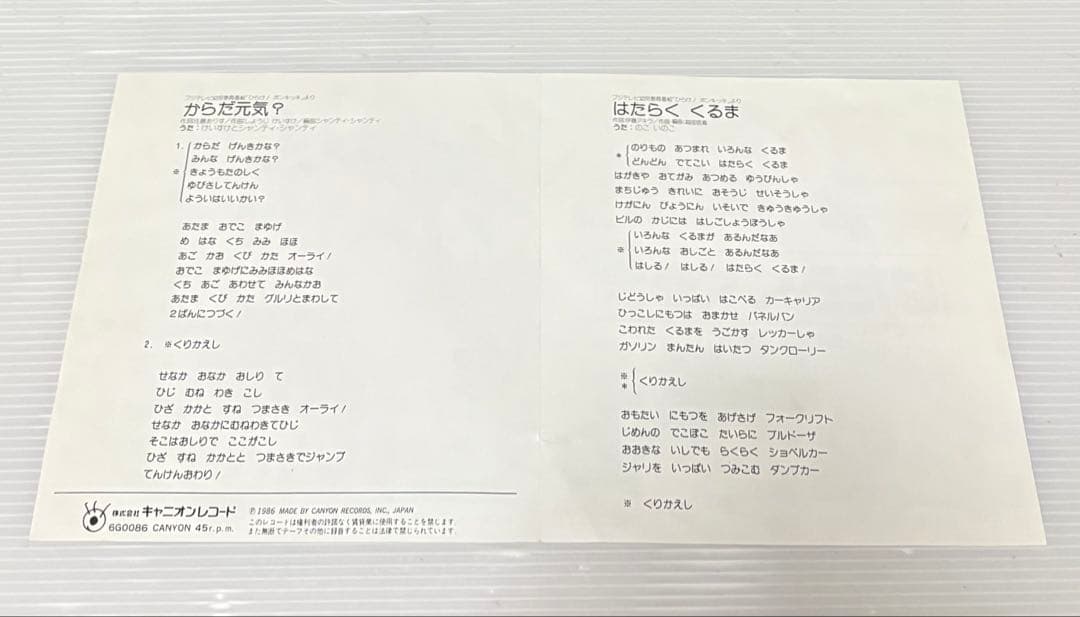 フジテレビ幼児教育番組「ひらけ!ポンキッキ」より
からだ元気?
うた:けいすけとシャンティ・シャンティ
1. からだ げんきかな?
みんな げんきかな?
※ きょうもたのしく
ゆびさしてんけん
よういはいいかい?
あたま おでこ まゆげ
め はな くち みみ ほほ
あご かお くび かた オーライ!
おでこ まゆげにみみほほめはな
くち あご あわせて みんなかお
あたま くび かた グルリとまわして
2ばんにつづく!
2. ※くりかえし
せなか おなか おしり て
ひじ むね わき こし
ひざ かかと すね つまさき オーライ!
せなか おなかにむねわきてひじ
そこはおしりで ここがこし
ひざ すね かかとと つまさきでジャンプ
てんけんおわり!
株式会社 キャニオンレコード
6G0086 CANYON 45r.p.m.
Ⓟ1986 MADE BY CANYON RECORDS, INC., JAPAN
このレコードは権利者の許諾なく賃貸業に使用することを禁じます。
また無断でテープその他に録音することは法律で禁じられています。
フジテレビ幼児教育番組「ひらけ!ポンキッキ」より
はたらく くるま
うた:のこ いのこ
* のりもの あつまれ いろんな くるま
どんどん でてこい はたらく くるま
はがきや おてがみ あつめる ゆうびんしゃ
まちじゅう きれいに おそうじ せいそうしゃ
けがにん びょうにん いそいで きゅうきゅうしゃ
ビルの かじには はしごしょうぼうしゃ
いろんな くるまが あるんだなあ
※ いろんな おしごと あるんだなあ
はしる! はしる! はたらく くるま!
じどうしゃ いっぱい はこべる カーキャリア
ひっこしにもつは おまかせ パネルバン
こわれた くるまを うごかす レッカーしゃ
ガソリン まんたん はいたつ タンクローリー
※
* くりかえし
おもたい にもつを あげさげ フォークリフト
じめんの でこぼこ たいらに ブルドーザ
おおきな いしでも らくらく ショベルカー
ジャリを いっぱい つみこむ ダンプカー
※ くりかえし